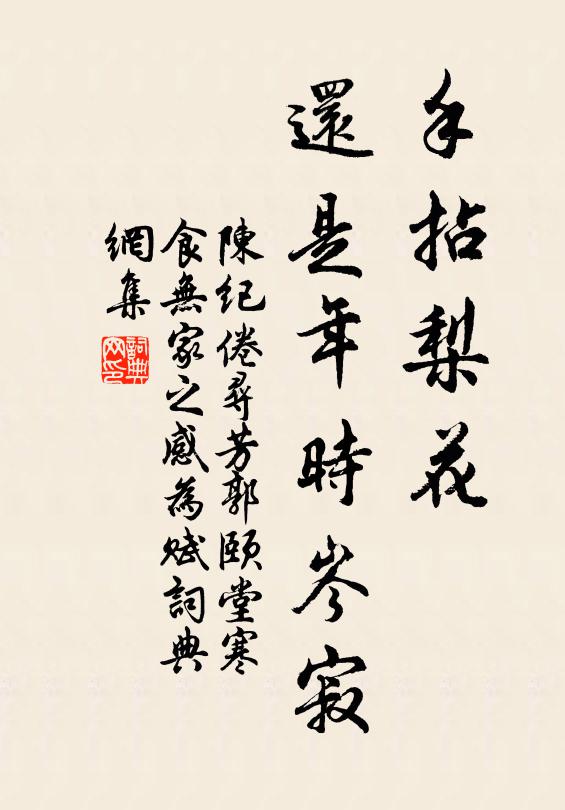 手拈梨花
還是年時岑寂
陳紀倦尋芳郭頤堂寒
食無家之感為賦詞典
網集
詞典網印